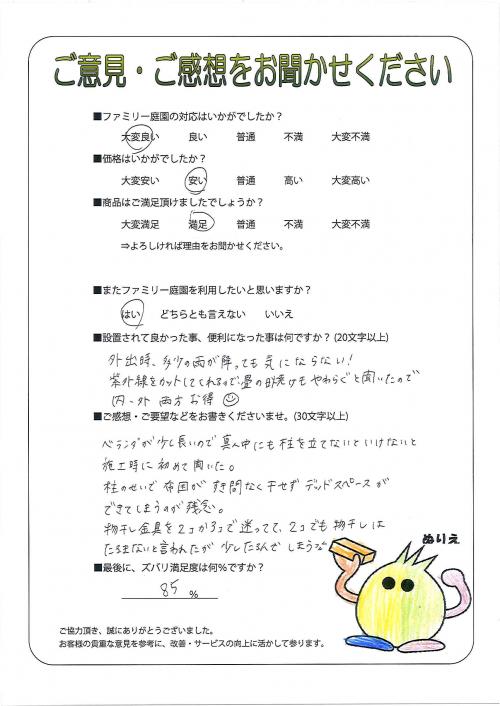 ご意見・ご感想をお聞かせください
■ファミリー庭園の対応はいかがでしたか？
大変良い　良い　普通　不満　大変不満
■価格はいかがでしたか？
大変安い　安い　普通　高い　大変高い
■商品はご満足頂けましたでしょうか？
大変満足　満足　普通　不満　大変不満
⇒よろしければ理由をお聞かせください。
■またファミリー庭園を利用したいと思いますか？
はい　どちらとも言えない　いいえ
■設置されて良かった事、便利になった事は何ですか？(20文字以上)
外出時、多少の雨が降っても気にならない！
紫外線をカットしてくれるので畳の日焼けもやわらぐと聞いたので
内・外 両方お得
■ご感想・ご要望などをお書きくださいませ。(30文字以上)
ベランダが少し長いので真ん中にも柱を立てないといけないと
施工時に初めて聞いた。
柱のせいで布団がすき間なく干せずデッドスペースが
できてしまうのが残念。
物干し金具を2コか3コで迷ってて、2コでも物干しは
たるまないと言われたが少したるんでしまうな
ぬりえ
■最後に、ズバリ満足度は何％ですか？
85 ％
ご協力頂き、誠にありがとうございました。
お客様の貴重な意見を参考に、改善・サービスの向上に活かして参ります。